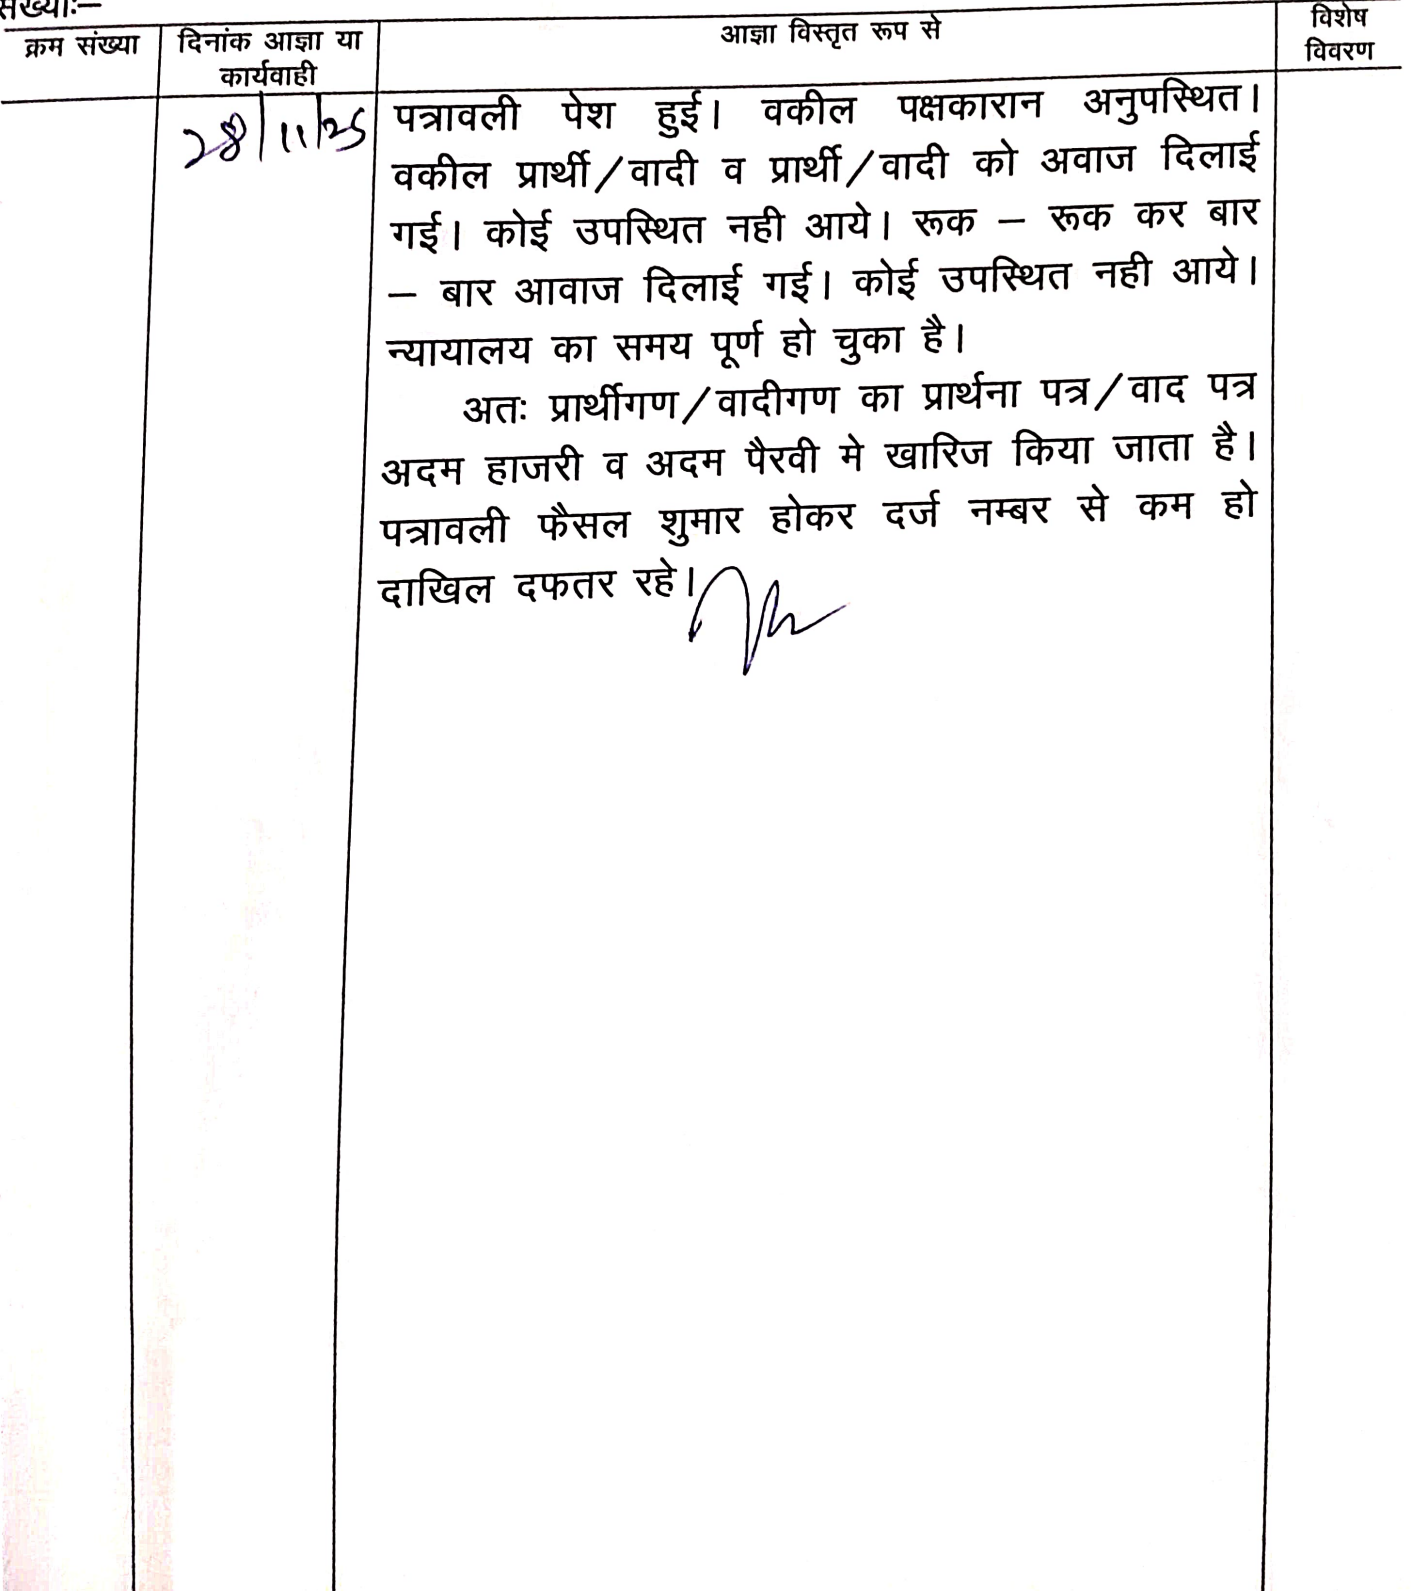 संख्याः–
क्रम संख्या
दिनांक आज्ञा या
कार्यवाही
आज्ञा विस्तृत रूप से
विशेष
विवरण
28/11/25
पत्रावली पेश हुई। वकील पक्षकारान अनुपस्थित।
वकील प्रार्थी/वादी व प्रार्थी/वादी को अवाज दिलाई
गई। कोई उपस्थित नही आये। रूक – रूक कर बार
– बार आवाज दिलाई गई। कोई उपस्थित नही आये।
न्यायालय का समय पूर्ण हो चुका है।
अतः प्रार्थीगण/वादीगण का प्रार्थना पत्र/वाद पत्र
अदम हाजरी व अदम पैरवी मे खारिज किया जाता है।
पत्रावली फैसल शुमार होकर दर्ज नम्बर से कम हो
दाखिल दफतर रहे।